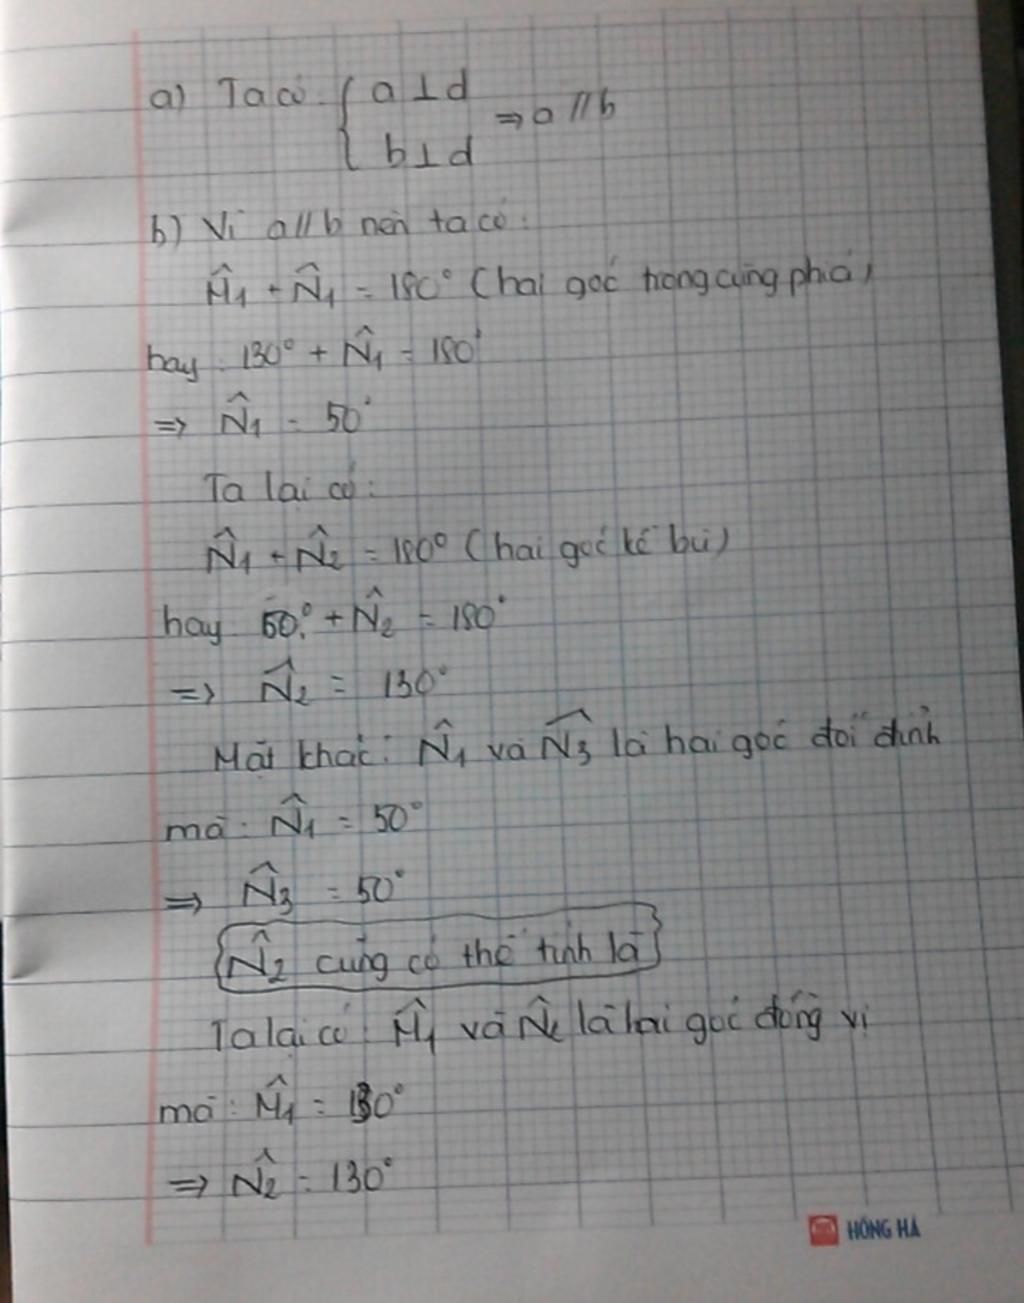 a) Ta có: { a ⊥ d
b ⊥ d ⇒ a // b
b) Vì a // b nên ta có:
M̂₁ + N̂₁ = 180° (hai góc trong cùng phía)
hay: 130° + N̂₁ = 180°
⇒ N̂₁ = 50°
Ta lại có:
N̂₁ + N̂₂ = 180° (hai góc kề bù)
hay 50° + N̂₂ = 180°
⇒ N̂₂ = 130°
Mặt khác: N̂₁ và N̂₃ là hai góc đối đỉnh
mà: N̂₁ = 50°
⇒ N̂₃ = 50°
{N̂₂ cũng có thể tính là}
Ta lại có: M̂₁ và N̂₂ là hai góc đồng vị
mà: M̂₁ = 130°
⇒ N̂₂ = 130°
HỒNG HÀ